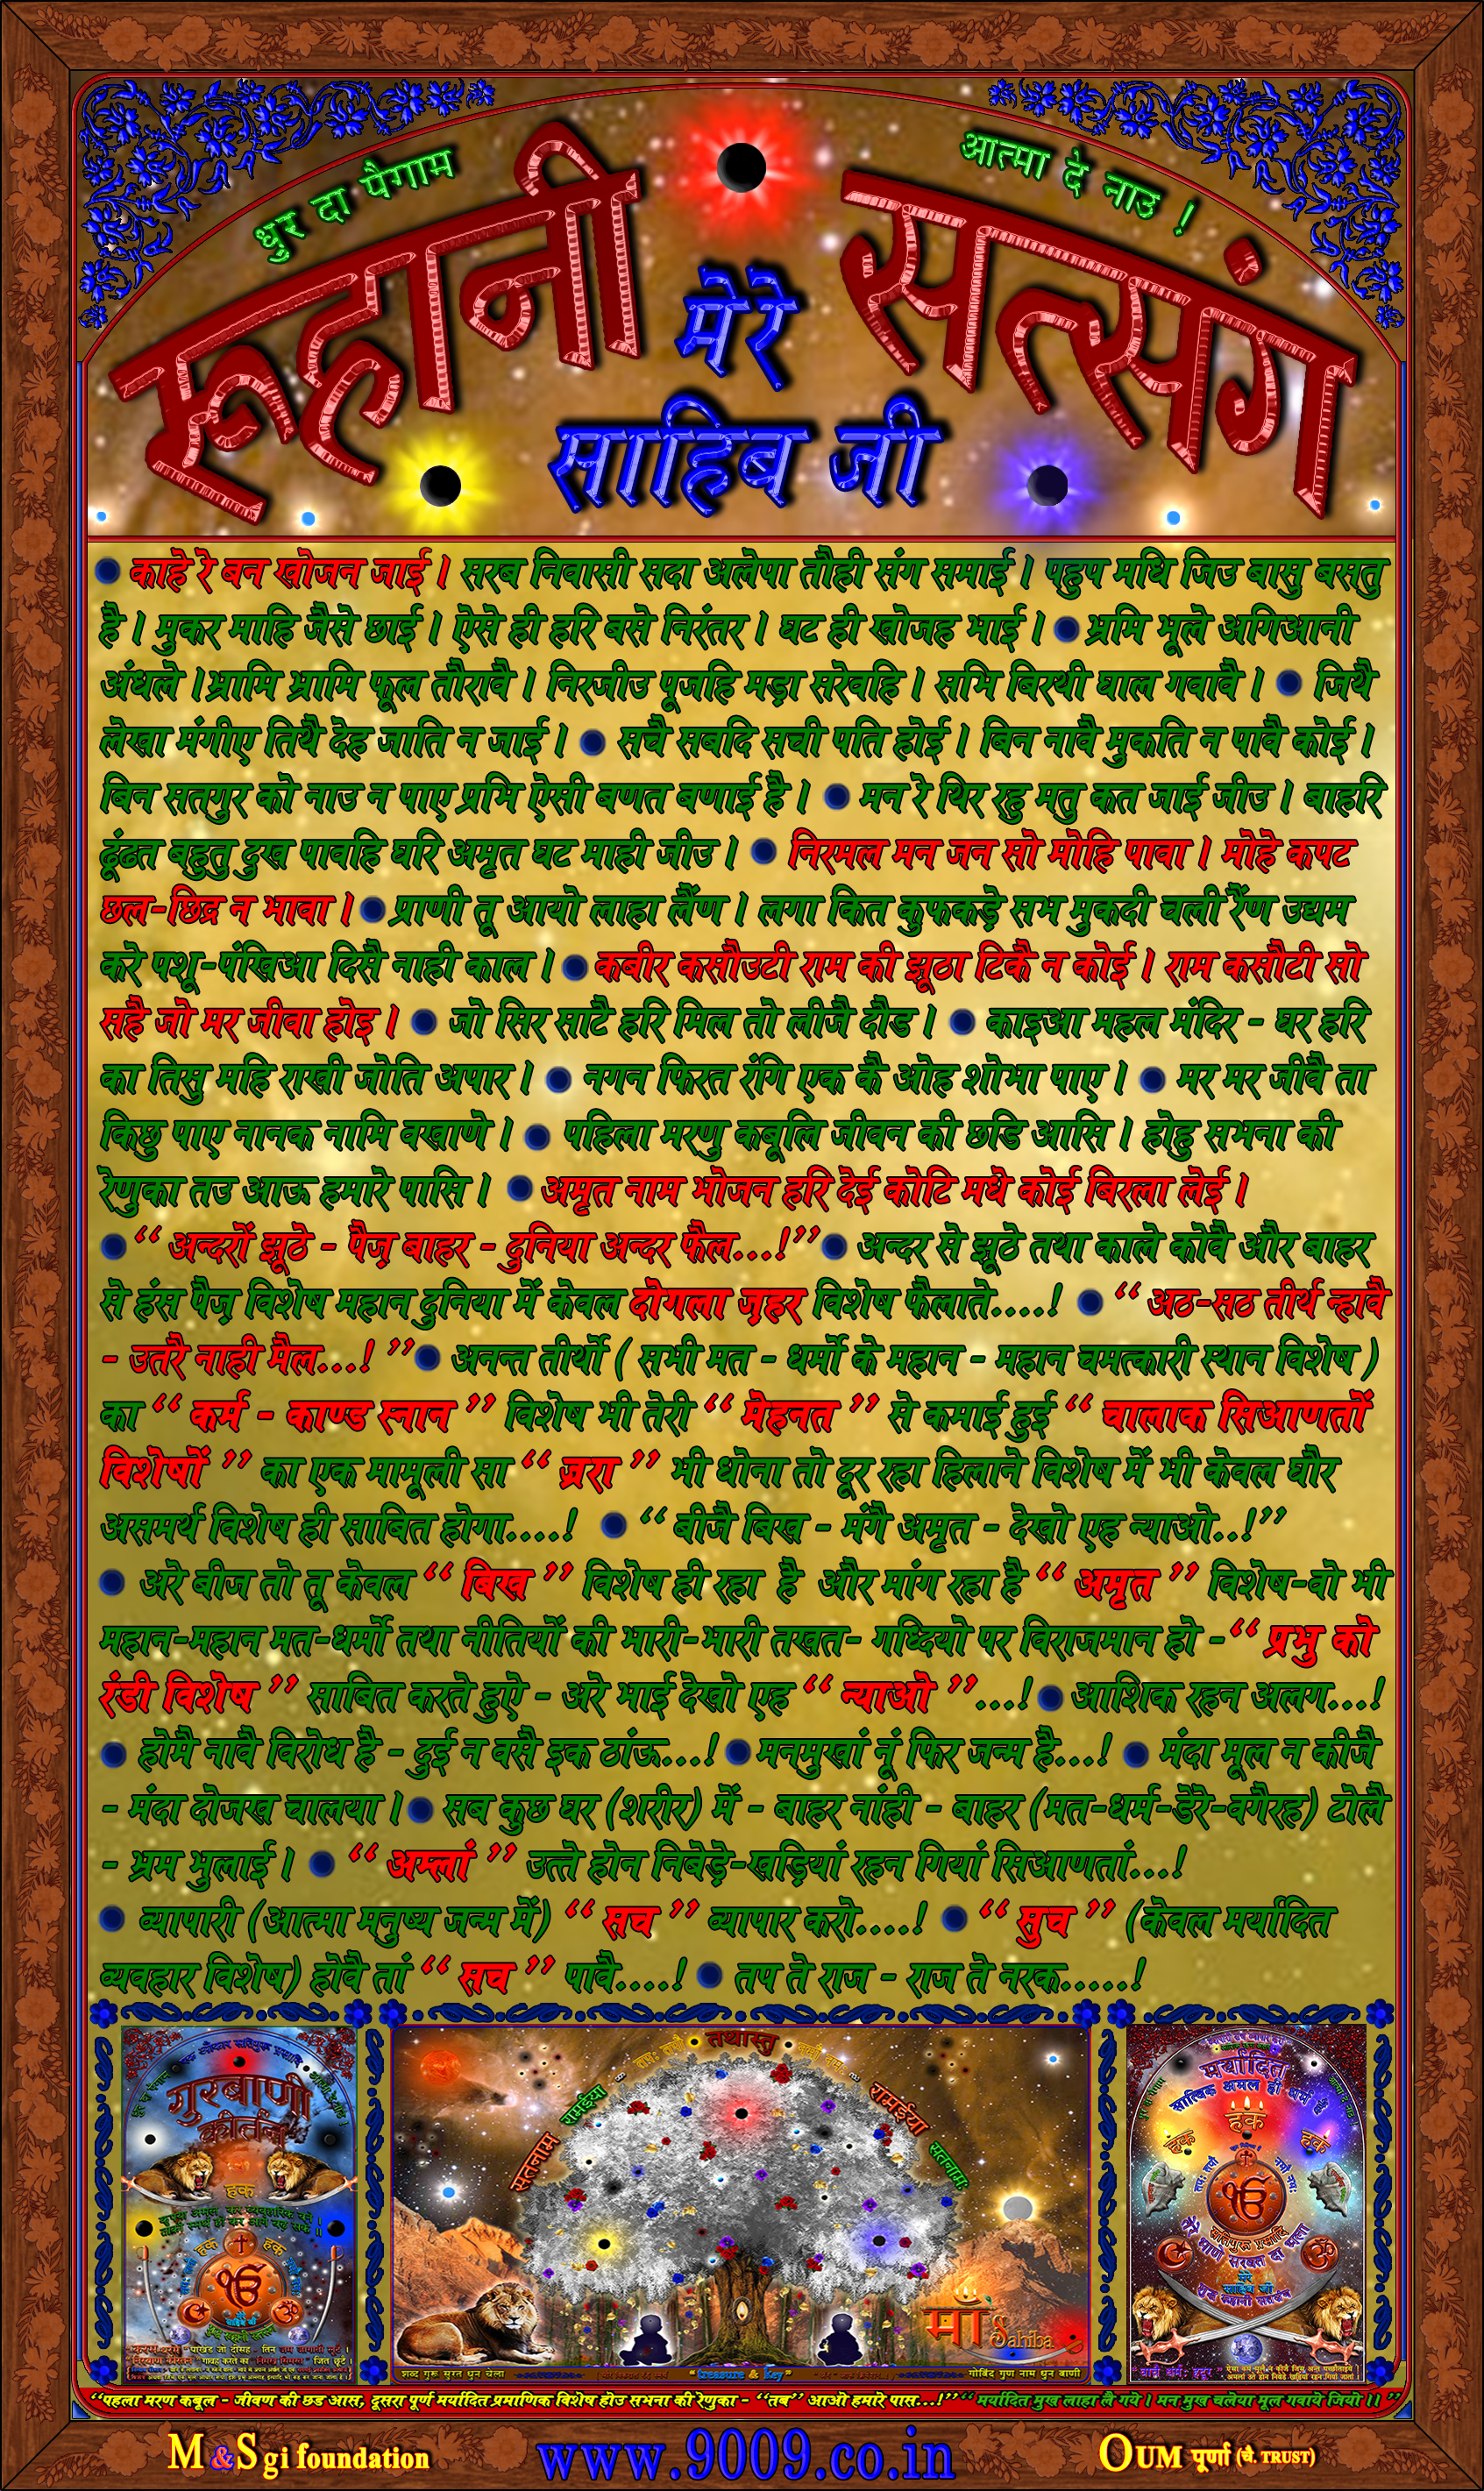 धुर दा पैगाम
आत्मा दे नाउ !
रूहानी सत्संग
मेरे
साहिब जी
काहे रे बन खोजन जाई । सरब निवासी सदा अलेपा तौही संग समाई । पहुप मधि जिउ बासु बसतु
है । मुकर माहि जैसे छाई । ऐसे ही हरि बसे निरंतर । घट ही खोजह भाई । भ्रमि भूले अगिआनी
अंधले ।भ्रामि भ्रामि फूल तौरावै । निरजीउ पूजहि मड़ा सरेवहि । सभि बिरथी घाल गवावै । जिथै
लेखा मंगीए तिथै देह जाति न जाई । सचै सबदि सची पति होई । बिन नावै मुकति न पावै कोई ।
बिन सतगुर को नाउ न पाए प्रभि ऐसी बणत बणाई है । मन रे थिर रहु मतु कत जाई जीउ । बाहरि
ढूंढत बहुतु दुख पावहि घरि अमृत घट माही जीउ । निरमल मन जन सो मोहि पावा । मोहे कपट
छल-छिद्र न भावा । प्राणी तू आयो लाहा लैंण । लगा कित कुफकड़े सभ मुकदी चली रैंण उद्यम
करे पशू-पंखिआ दिसै नाही काल । कबीर कसौउटी राम की झूठा टिकै न कोई । राम कसौटी सो
सहै जो मर जीवा होइ । जो सिर साटै हरि मिल तो लीजै दौड । काइआ महल मंदिर - घर हरि
का तिसु महि राखी जोति अपार । नगन फिरत रंगि एक कै ओह शोभा पाए । मर मर जीवै ता
किछु पाए नानक नामि वखाणे । पहिला मरणु कबूलि जीवन की छडि आसि । होहु सभना की
रेणुका तउ आऊ हमारे पासि । अमृत नाम भोजन हरि देई कोटि मधे कोई बिरला लेई ।
“ अन्दरों झूठे - पैज़ बाहर - दुनिया अन्दर फैल...!” अन्दर से झूठे तथा काले कोवै और बाहर
से हंस पैज़ विशेष महान दुनिया में केवल दोगला ज़हर विशेष फैलाते....! “ अठ-सठ तीर्थ न्हावै
- उतरै नाही मैल...! ” अनन्त तीर्थो ( सभी मत - धर्मो के महान - महान चमत्कारी स्थान विशेष )
का “ कर्म - काण्ड स्नान ” विशेष भी तेरी “ मेहनत ” से कमाई हुई “ चालाक सिआणतों
विशेषों ” का एक मामूली सा “ ज़रा ” भी धोना तो दूर रहा हिलाने विशेष में भी केवल घौर
असमर्थ विशेष ही साबित होगा....! “ बीजै बिख - मंगै अमृत - देखो एह न्याओ..!”
अरे बीज तो तू केवल “ बिख ” विशेष ही रहा है और मांग रहा है “ अमृत ” विशेष-वो भी
महान-महान मत-धर्मो तथा नीतियों की भारी-भारी तखत- गध्दियो पर विराजमान हो -“ प्रभु को
रंडी विशेष ” साबित करते हुऐ - अरे भाई देखो एह “ न्याओ ”...! आशिक रहन अलग...!
होमै नावै विरोध है - दुई न वसै इक ठांऊ...! मनमुखां नूं फिर जन्म है...! मंदा मूल न कीजै
- मंदा दोजख चालया । सब कुछ घर (शरीर) में - बाहर नांही - बाहर (मत-धर्म-डेरे-वगैरह) टोलै
- भ्रम भुलाई । “ अम्लां ” उत्ते होन निबेड़े-खड़ियां रहन गियां सिआणतां...!
व्यापारी (आत्मा मनुष्य जन्म में) “ सच ” व्यापार करो....! “ सुच ” (केवल मर्यादित
व्यवहार विशेष) होवै तां “ सच ” पावै....! तप ते राज - राज ते नरक.....!
गुरबाणी
कीर्तन
हक
हक
हक
तथास्तु
सतनाम
रामईया
रामईया
सतनाम
माँ Sahiba
शब्द गुरु सुरत धुन चेला
“treasure & key”
गोबिंद गुण नाम धुन बाणी
मर्यादित
सात्विक अमल ही धर्म
हक
हक
हक
मेरे
साहिब जी
“पहला मरण कबूल - जीवण की छड आस, दूसरा पूर्ण मर्यादित प्रमाणिक विशेष होउ सभना की रेणुका - “तब” आओ हमारे पास...!” “ मर्यादित मुख लाहा लै गये । मन मुख चलेया मूल गवाये जियो ।। ”
M &S gi foundation
www.9009.co.in
OUM पूर्णा (चै. TRUST)